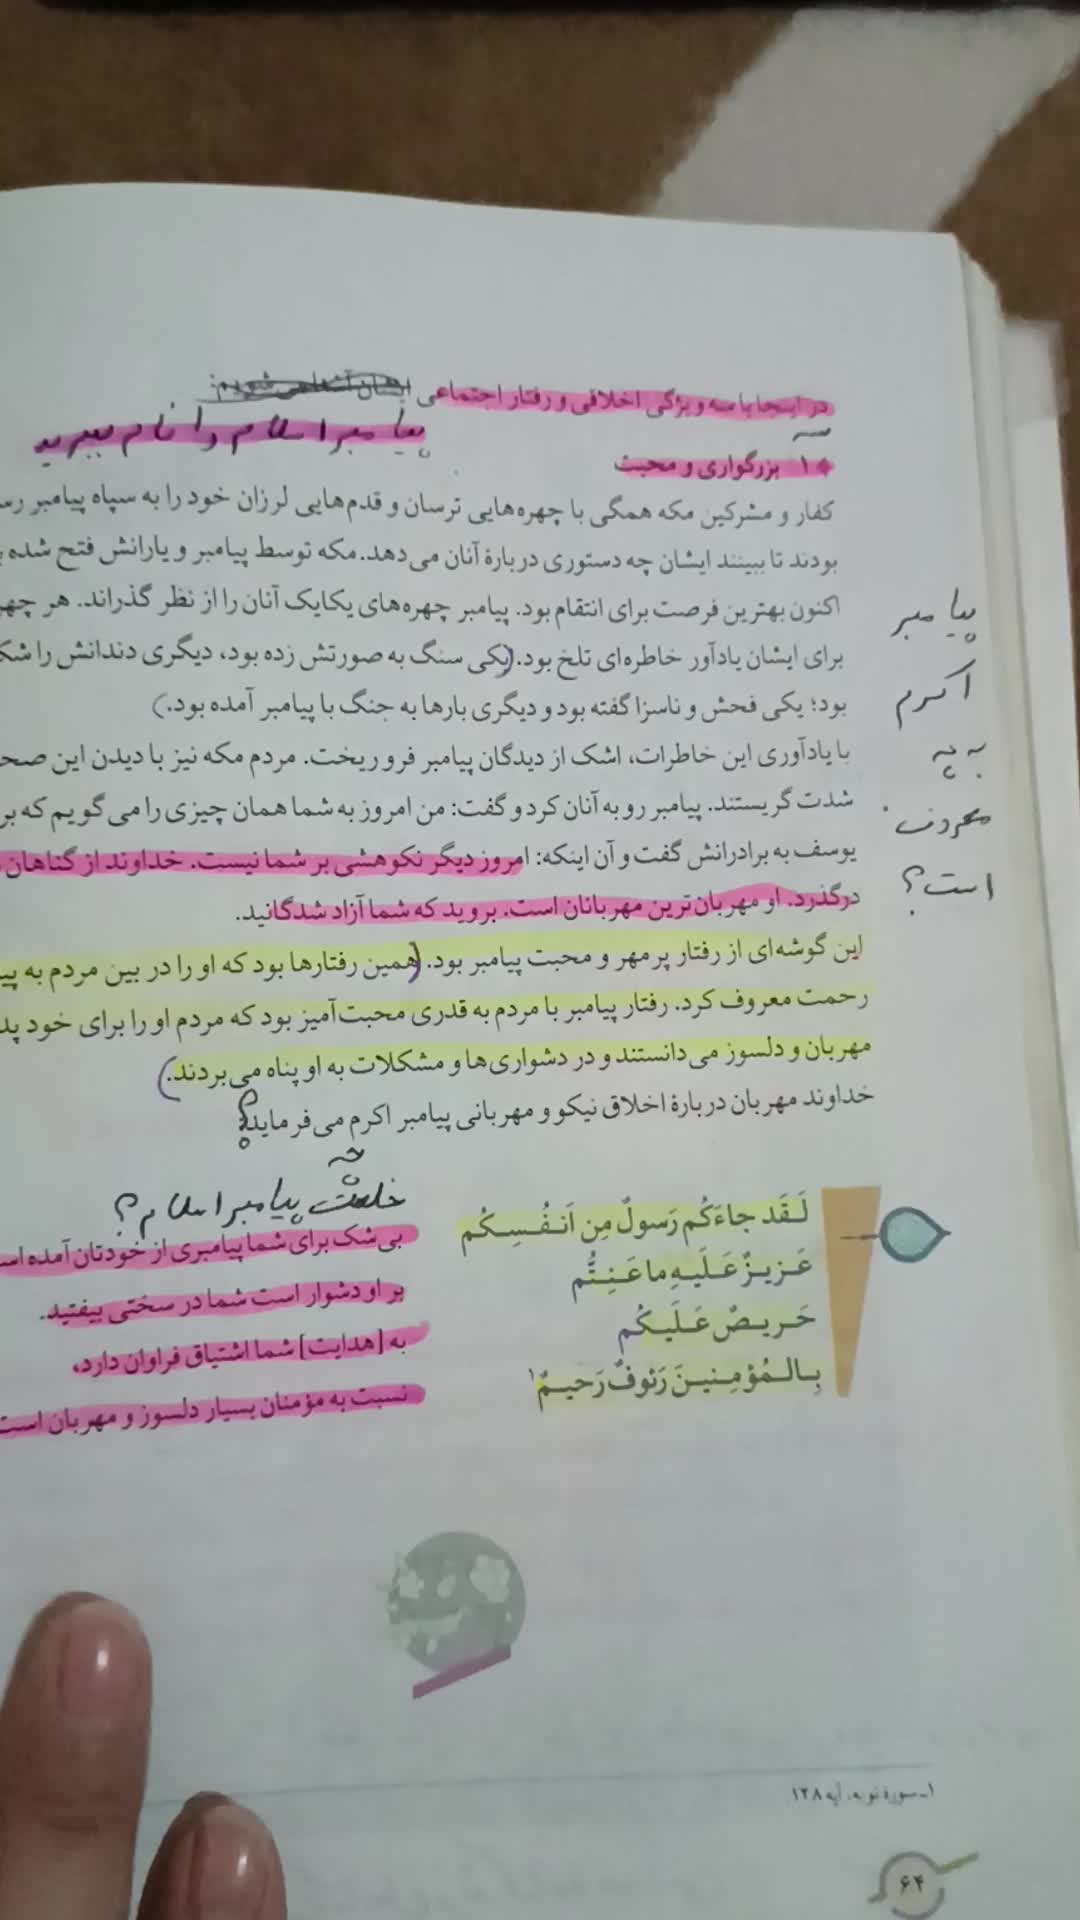 در اینجا با سه ویژگی اخلاقی و رفتار اجتماعی ایشان آشنا می‌شویم:
پیامبر اسلام را نام ببرید
۱ بزرگواری و محبت
کفار و مشرکین مکه همگی با چهره‌هایی ترسان و قدم‌هایی لرزان خود را به سپاه پیامبر
بودند تا ببینند ایشان چه دستوری دربارهٔ آنان می‌دهد. مکه توسط پیامبر و یارانش فتح شده
اکنون بهترین فرصت برای انتقام بود. پیامبر چهره‌های یکایک آنان را از نظر گذراند. هر
برای ایشان یادآور خاطره‌ای تلخ بود. (یکی سنگ به صورتش زده بود، دیگری دندانش را
بود؛ یکی فحش و ناسزا گفته بود و دیگری بارها به جنگ با پیامبر آمده بود.)
با یادآوری این خاطرات، اشک از دیدگان پیامبر فرو ریخت. مردم مکه نیز با دیدن این
شدت گریستند. پیامبر رو به آنان کرد و گفت: من امروز به شما همان چیزی را می‌گویم که
یوسف به برادرانش گفت و آن اینکه: امروز دیگر نکوهشی بر شما نیست. خداوند از گناهان
درگذرد. او مهربان‌ترین مهربانان است. بروید که شما آزاد شدگانید.
این گوشه‌ای از رفتار پرمهر و محبت پیامبر بود. (همین رفتارها بود که او را در بین مردم به
رحمت معروف کرد. رفتار پیامبر با مردم به قدری محبت‌آمیز بود که مردم او را برای خود
مهربان و دلسوز می‌دانستند و در دشواری‌ها و مشکلات به او پناه می‌بردند.)
خداوند مهربان دربارهٔ اخلاق نیکو و مهربانی پیامبر اکرم می‌فرماید؟
پیامبر
اکرم
به چه
معروف
است؟
پیامبر اسلام؟
لَقَد جاءَکُم رَسولٌ مِن اَنفُسِکُم
بی‌شک برای شما پیامبری از خودتان آمده
عَزیزٌ عَلَیهِ ما عَنِتُّم
بر او دشوار است شما در سختی بیفتید.
حَریصٌ عَلَیکُم
به [هدایت] شما اشتیاق فراوان دارد،
بِالمُؤمِنینَ رَئوفٌ رَحیمٌ۱
نسبت به مؤمنان بسیار دلسوز و مهربان است
۱ـ سورهٔ توبه، آیه ۱۲۸
۶۴